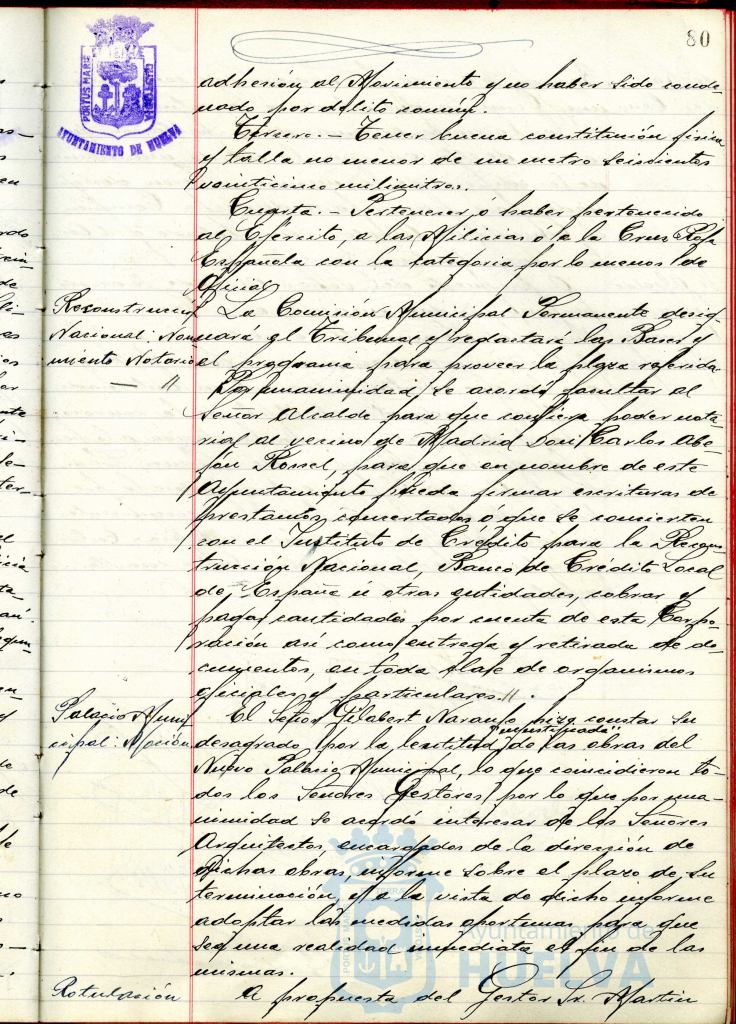 80
PORTUS MARIS ET TERRAE CUSTODIA
AYUNTAMIENTO DE HUELVA
adhesión al Movimiento y no haber sido conde-
nado por delito común.
Tercero.- Tener buena constitución física
y talla no menor de un metro seiscientos
veinticinco milimitros.
Cuarta.- Pertenecer ó haber pertenecido
al Ejército, a las Milicias ó a la Cruz Roja
Española con la categoria por lo menos de
Oficial.
Reconstrucción
Nacional: Nom-
miento Notario
— //
La Comisión Municipal Permanente desig-
nará el Tribunal y redactará las Bases y
el programa para proveer la plaza referida.
Por unanimidad se acordó facultar al
Señor Alcalde para que confiera poder nota-
rial al vecino de Madrid Don Carlos Abe-
jón Rossel, para que en nombre de este
Ayuntamiento pueda firmar escrituras de
prestamos concertados ó que se concierten
con el Instituto de Crédito para la Recons-
trucción Nacional, Banco de Crédito Local
de España ú otras entidades, cobrar y
pagar cantidades por cuenta de esta Corpo-
ración así como entrega y retirada de do-
cumentos, en toda clase de organismos
oficiales y particulares.//.
Palacio Muni-
cipal: Moción
El Señor Gilabert Naranjo hizo constar su
desagrado por la lentitud injustificada de las obras del
Nuevo Palacio Municipal, lo que coincidieron to-
dos los Señores Gestores, por lo que por una-
nimidad se acordó interesar de los Señores
Arquitectos, encargados de la dirección de
dichas obras, informe sobre el plazo de su
terminación, y a la vista de dicho informe
adoptar las medidas oportunas para que
sea una realidad inmediata el fin de las
mismas.
Rotulación
A propuesta del Gestor Sr. Martin
Ayuntamiento de
HUELVA